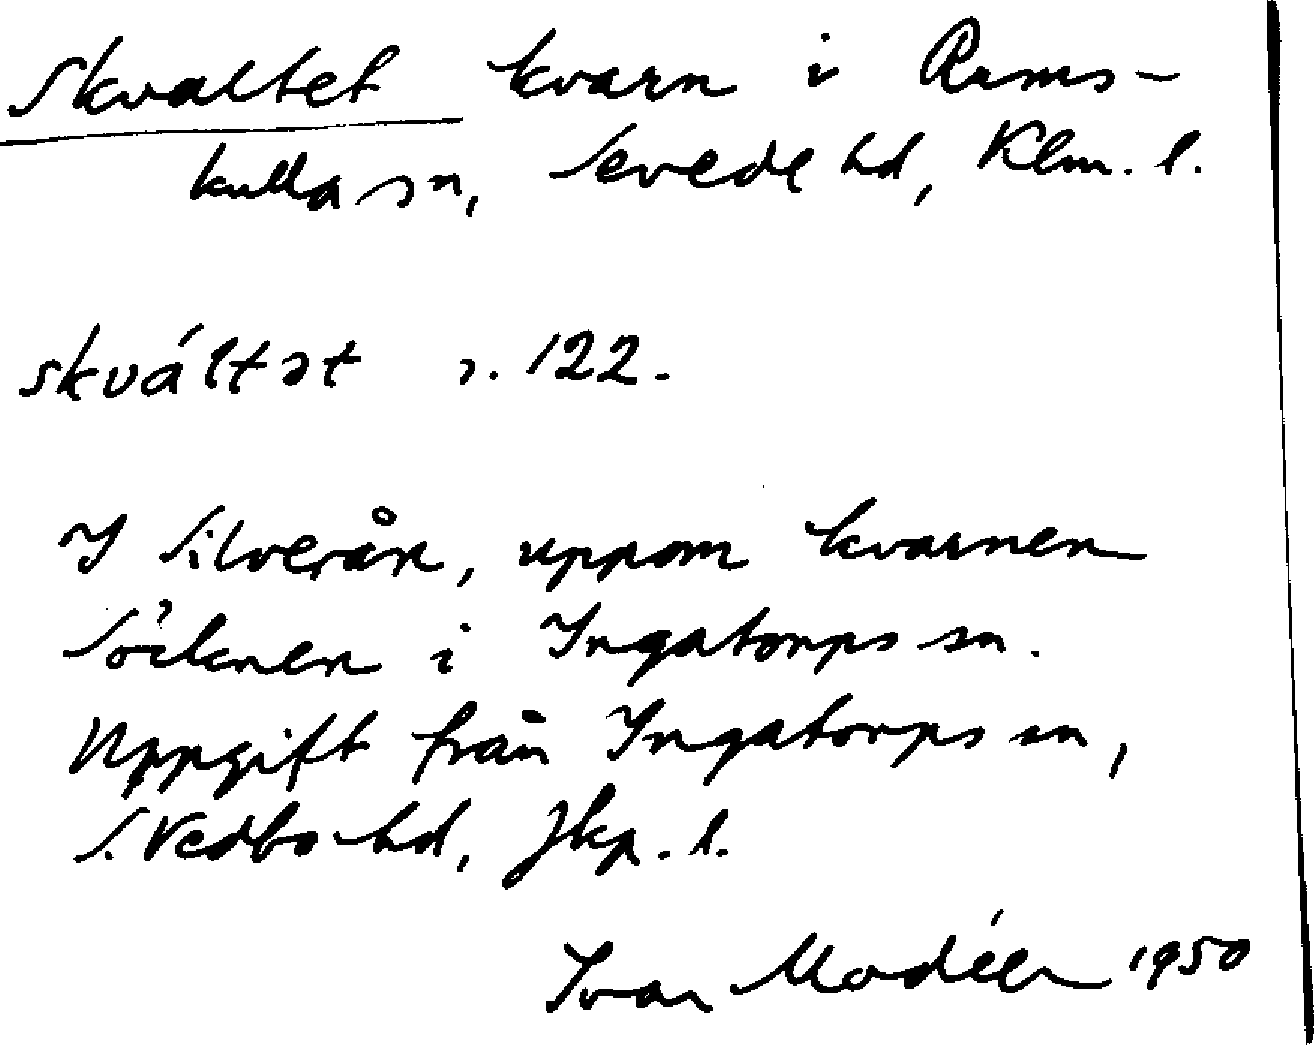 Skvaltet kvarn i Rums-
kulla sn, Sevede hd, Klm. l.
skváltət s. 122.
I Silverån, uppom kvarnen
Söcknen i Ingatorps sn.
Uppgift från Ingatorps sn,
S. Vedbo hd, Jkp. l.
Ivar Modéer 1950